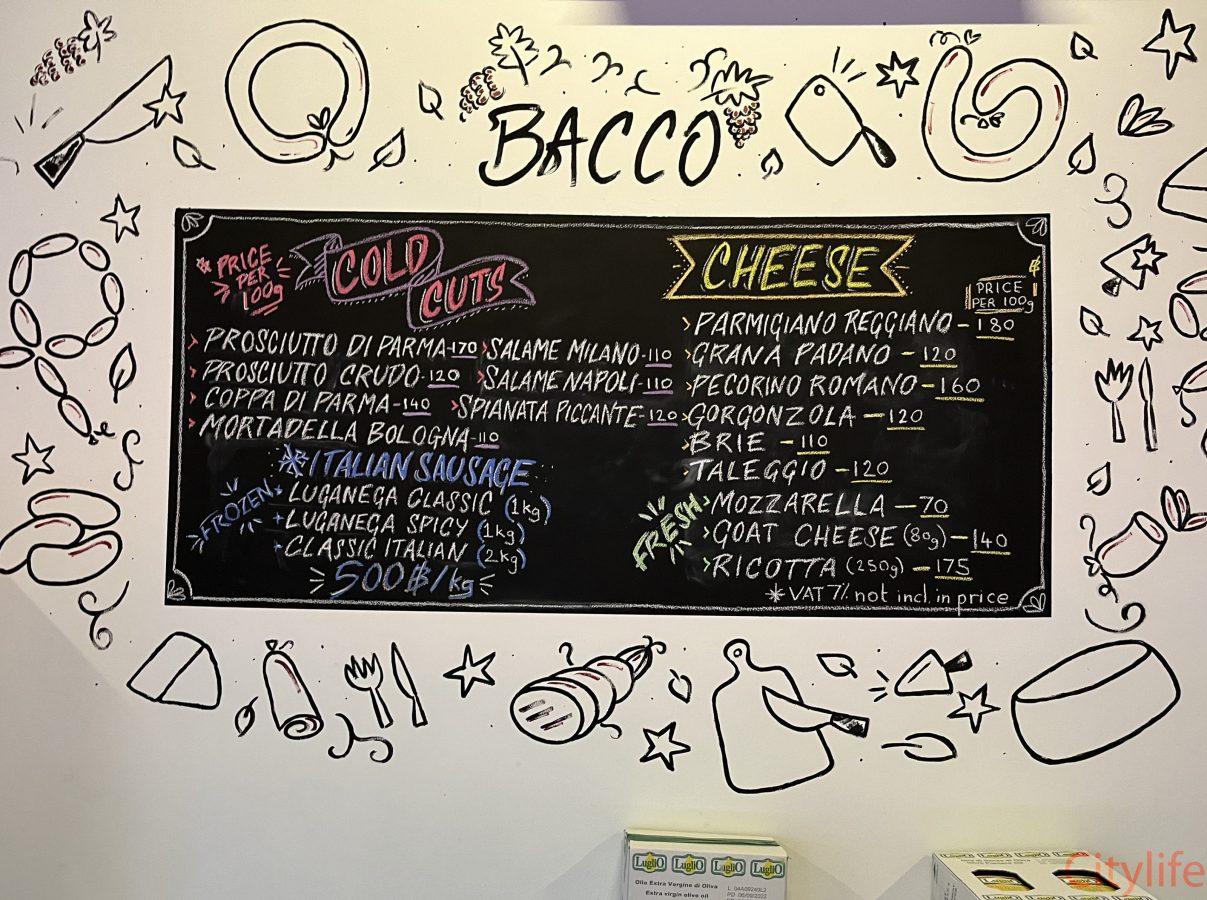 BACCO
PRICE
PER
100g
COLD
CUTS
PROSCIUTTO DI PARMA-170
PROSCIUTTO CRUDO-120
COPPA DI PARMA-140
MORTADELLA BOLOGNA-110
SALAME MILANO-110
SALAME NAPOLI-110
SPIANATA PICCANTE-120
ITALIAN SAUSAGE
FROZEN
LUGANEGA CLASSIC (1kg)
LUGANEGA SPICY (1kg)
CLASSIC ITALIAN (2kg)
500฿/kg
CHEESE
฿
PRICE
PER 100g
PARMIGIANO REGGIANO-180
GRANA PADANO-120
PECORINO ROMANO-160
GORGONZOLA-120
BRIE-110
TALEGGIO-120
FRESH
MOZZARELLA-70
GOAT CHEESE (80g)-140
RICOTTA (250g)-175
*VAT 7% not incl. in price
LugliO LugliO LugliO LugliO
Olio Extra Vergine di Oliva
Extra virgin olive oil
Citylife